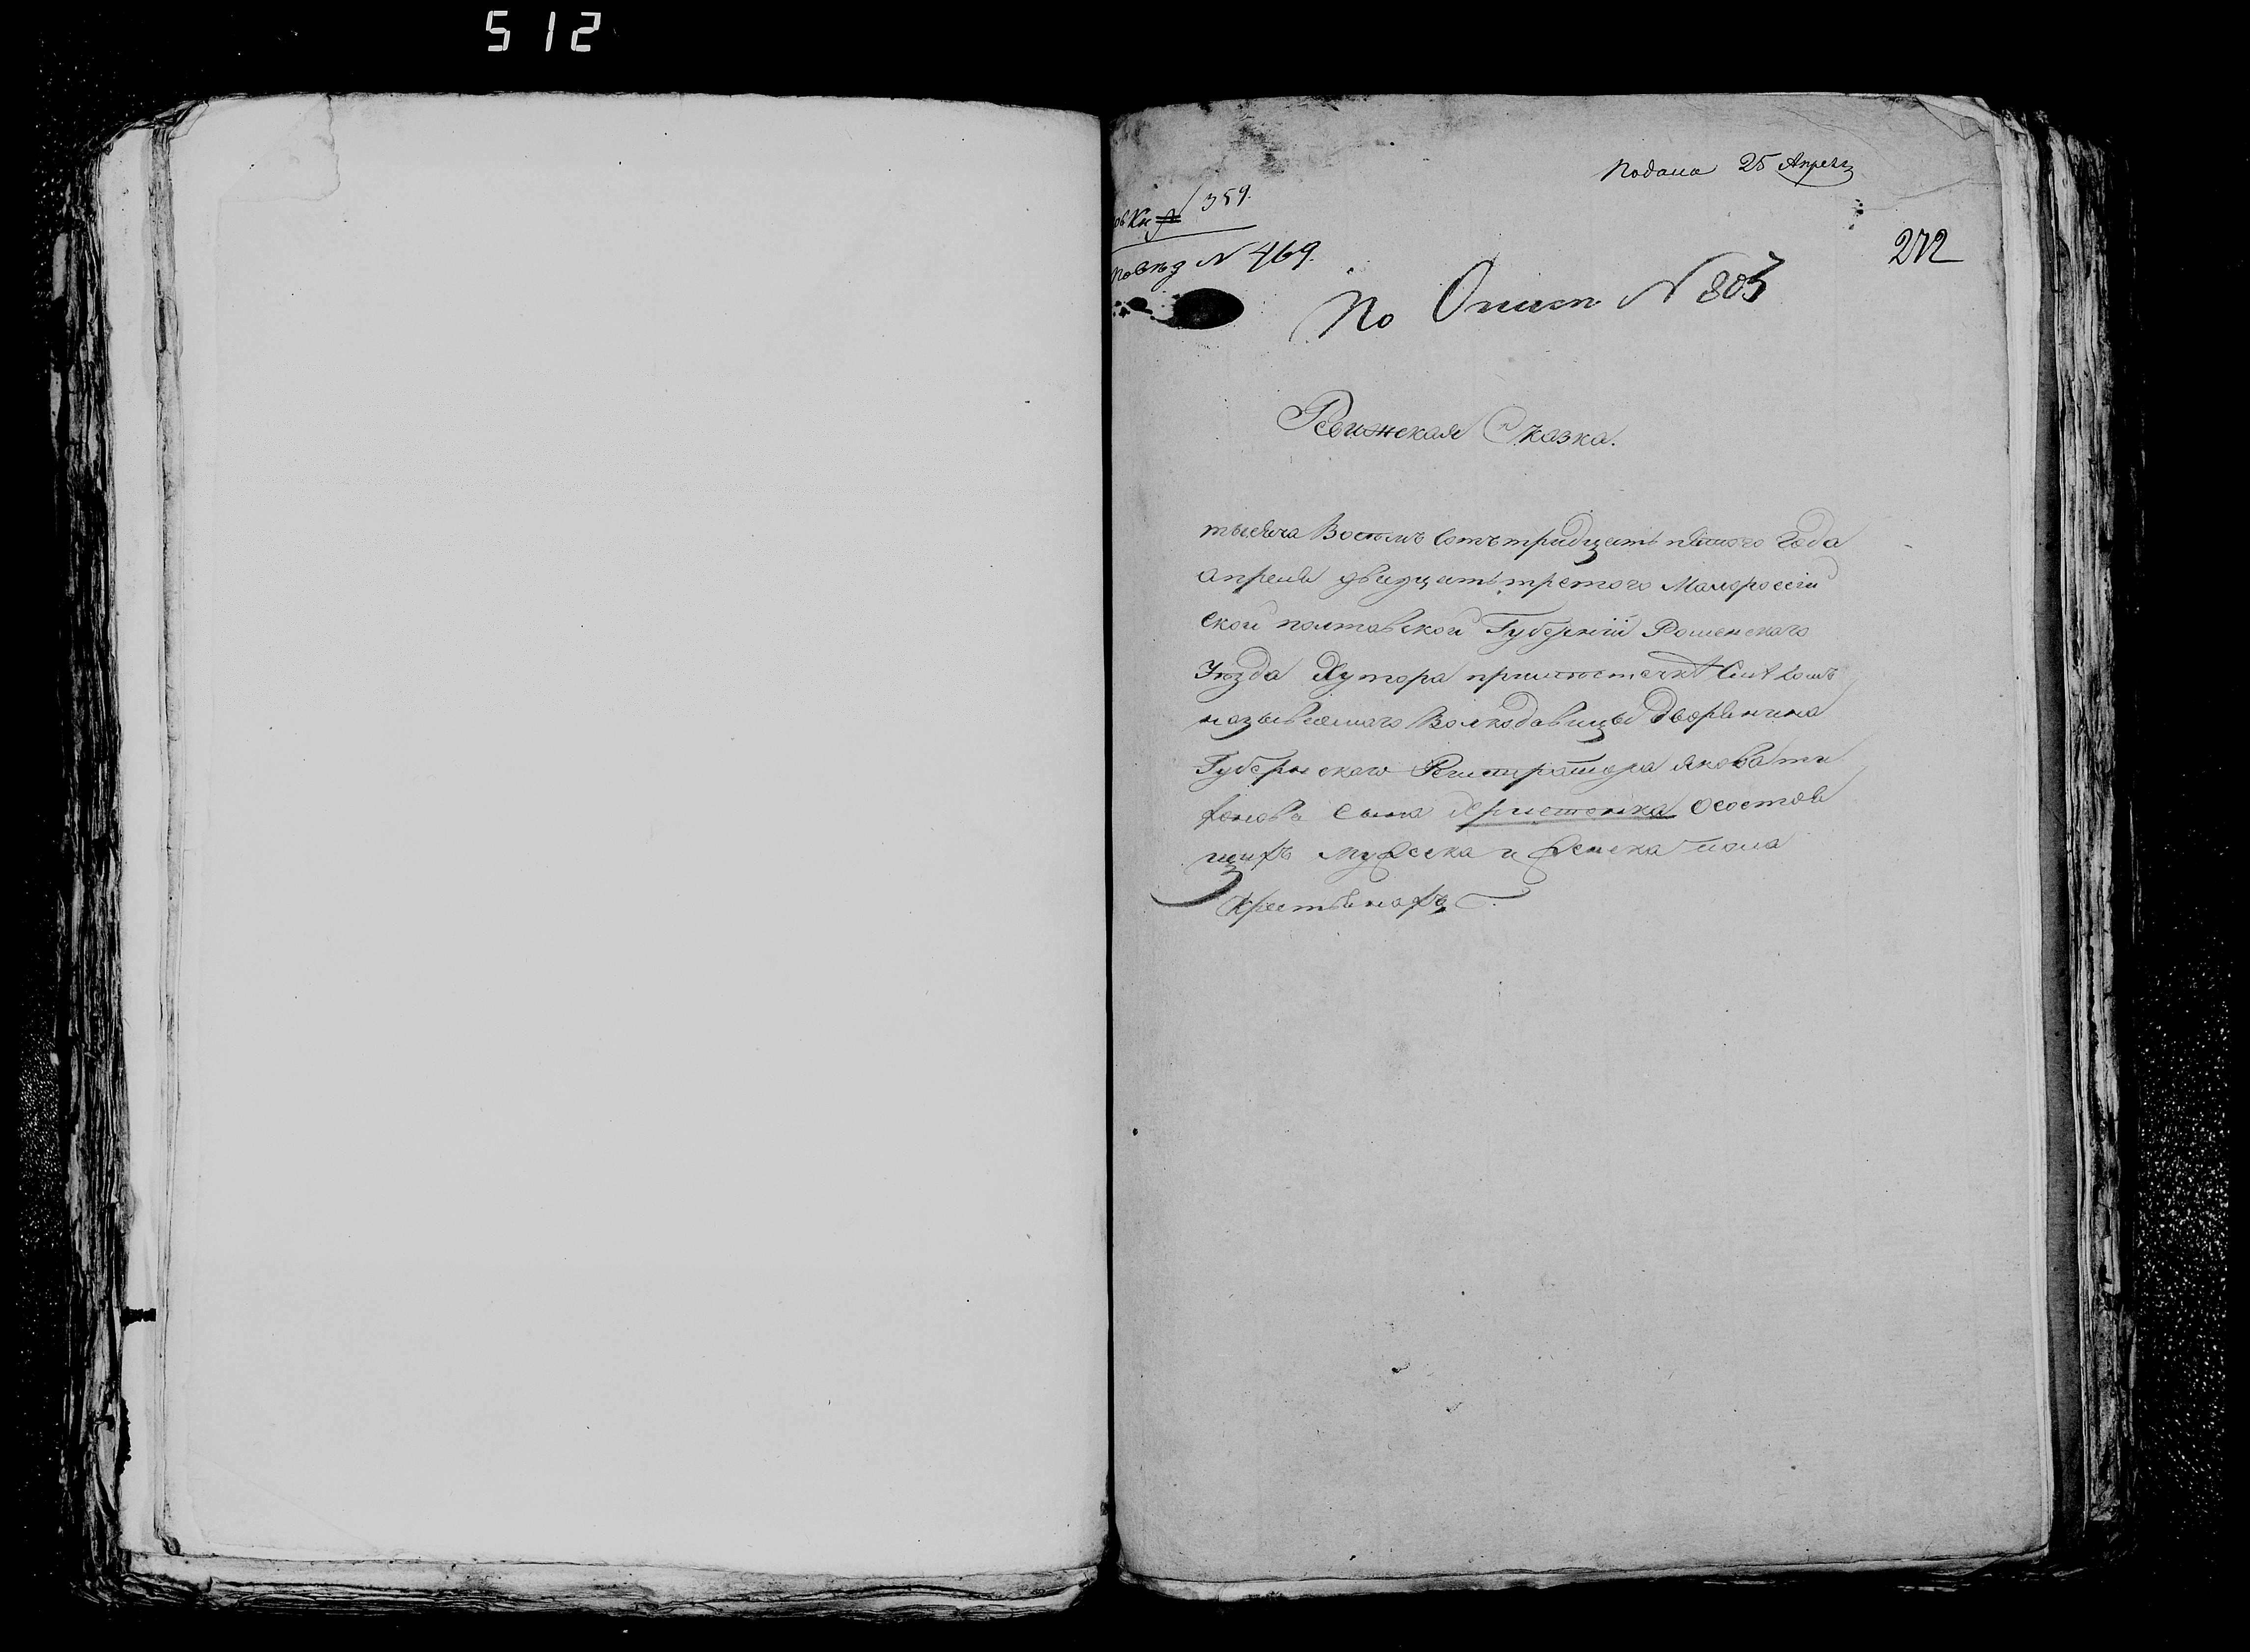 512
Подана 25 Апреля
359.
272
повѣд N 469.
По Описи N 805
Ревижская Сказка.
тысяча Восемъ сотъ тридцать пятого Года
апреля двадцать третого Малоросий
ской полтавской Губернїи Роменского
Уезда Хутора приместечке
называемого Волкодавицы Дворянина
Губернского Регистратора Якова ти
фонова Сына Христенка осостоя
щихъ мужеска и женска пола
Крестянахъ